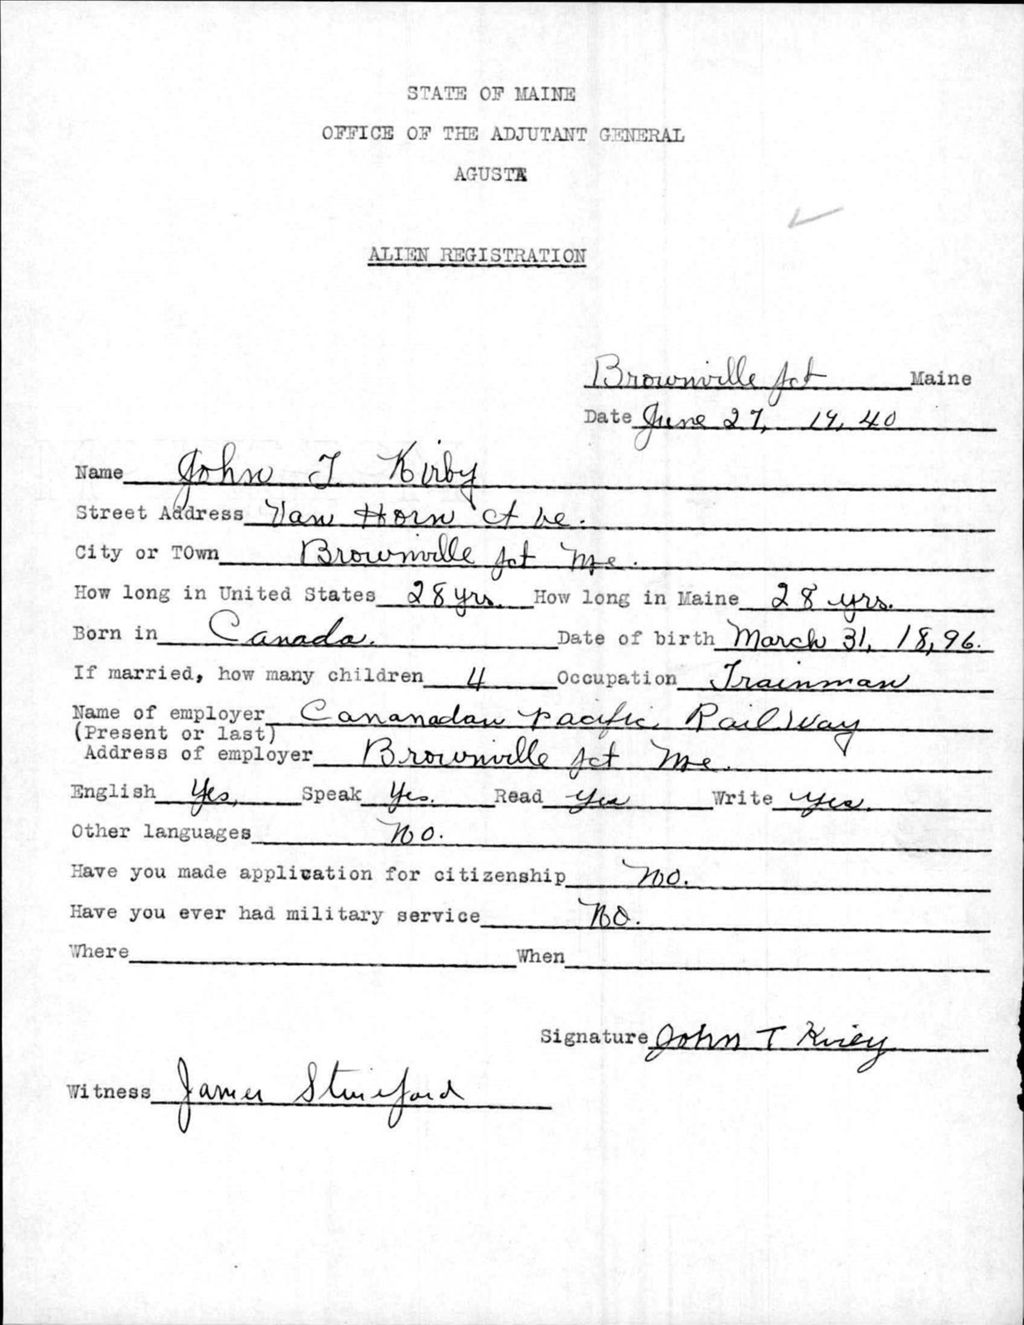 STATE OF MAINE
OFFICE OF THE ADJUTANT GENERAL
AGUSTA
ALIEN REGISTRATION
Brownville Jct Maine
Date June 27, 19,40
Name John T Kirby
Street Address Van Horn
City or TOwn Brownville Jct Me.
How long in United States 28 yrs. How long in Maine 28 yrs.
Born in Canada. Date of birth March 31, 18,96.
If married, how many children 4 Occupation Trainman
Name of employer Cananadan Pacific Rail Way
(Present or last)
Address of employer Brownville Jct Me.
English Yes, Speak Yes. Read Yes Write Yes.
Other languages No.
Have you made application for citizenship No.
Have you ever had military service No.
Where When
Signature John T Kirby
Witness James